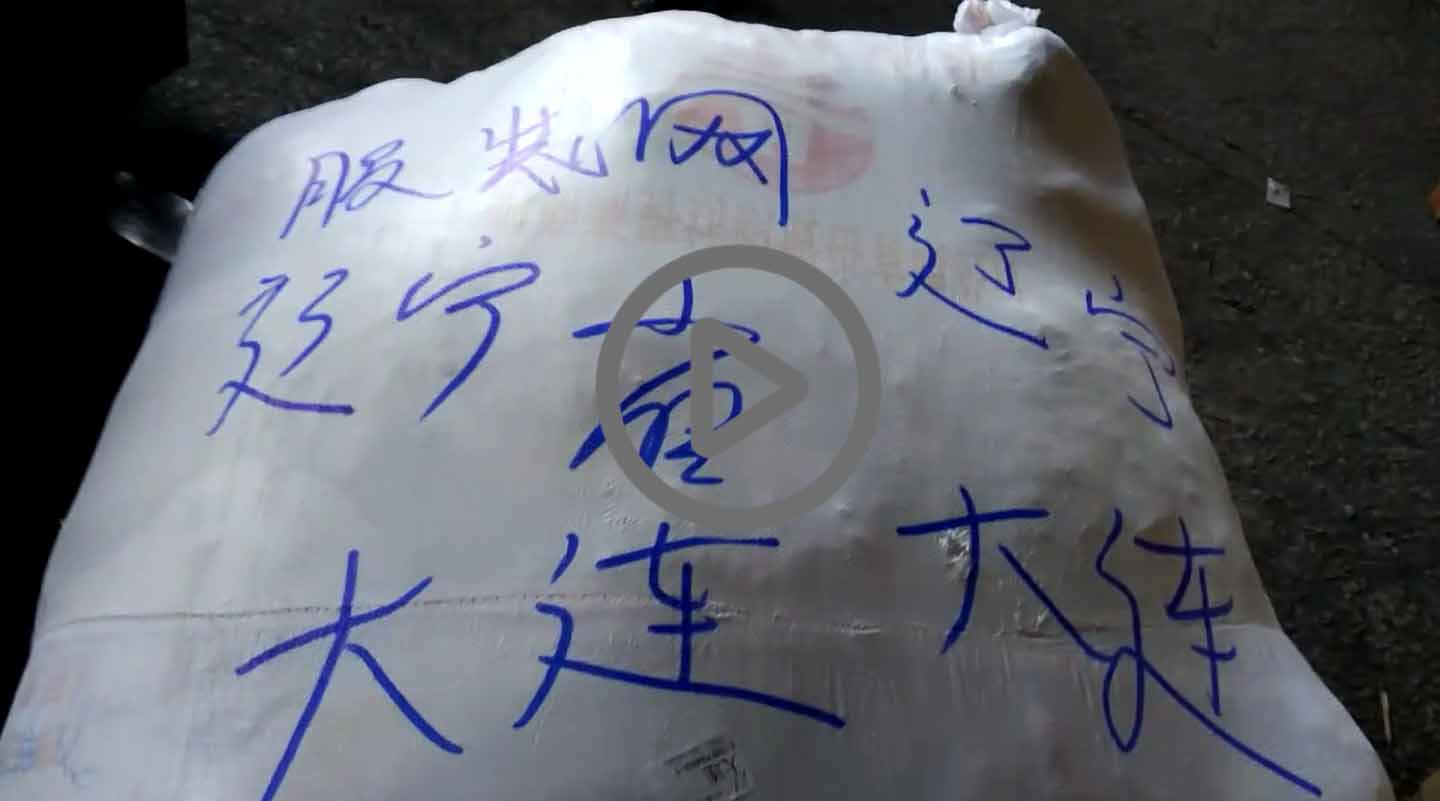 服装网
辽宁 辽宁
董
大连 大连